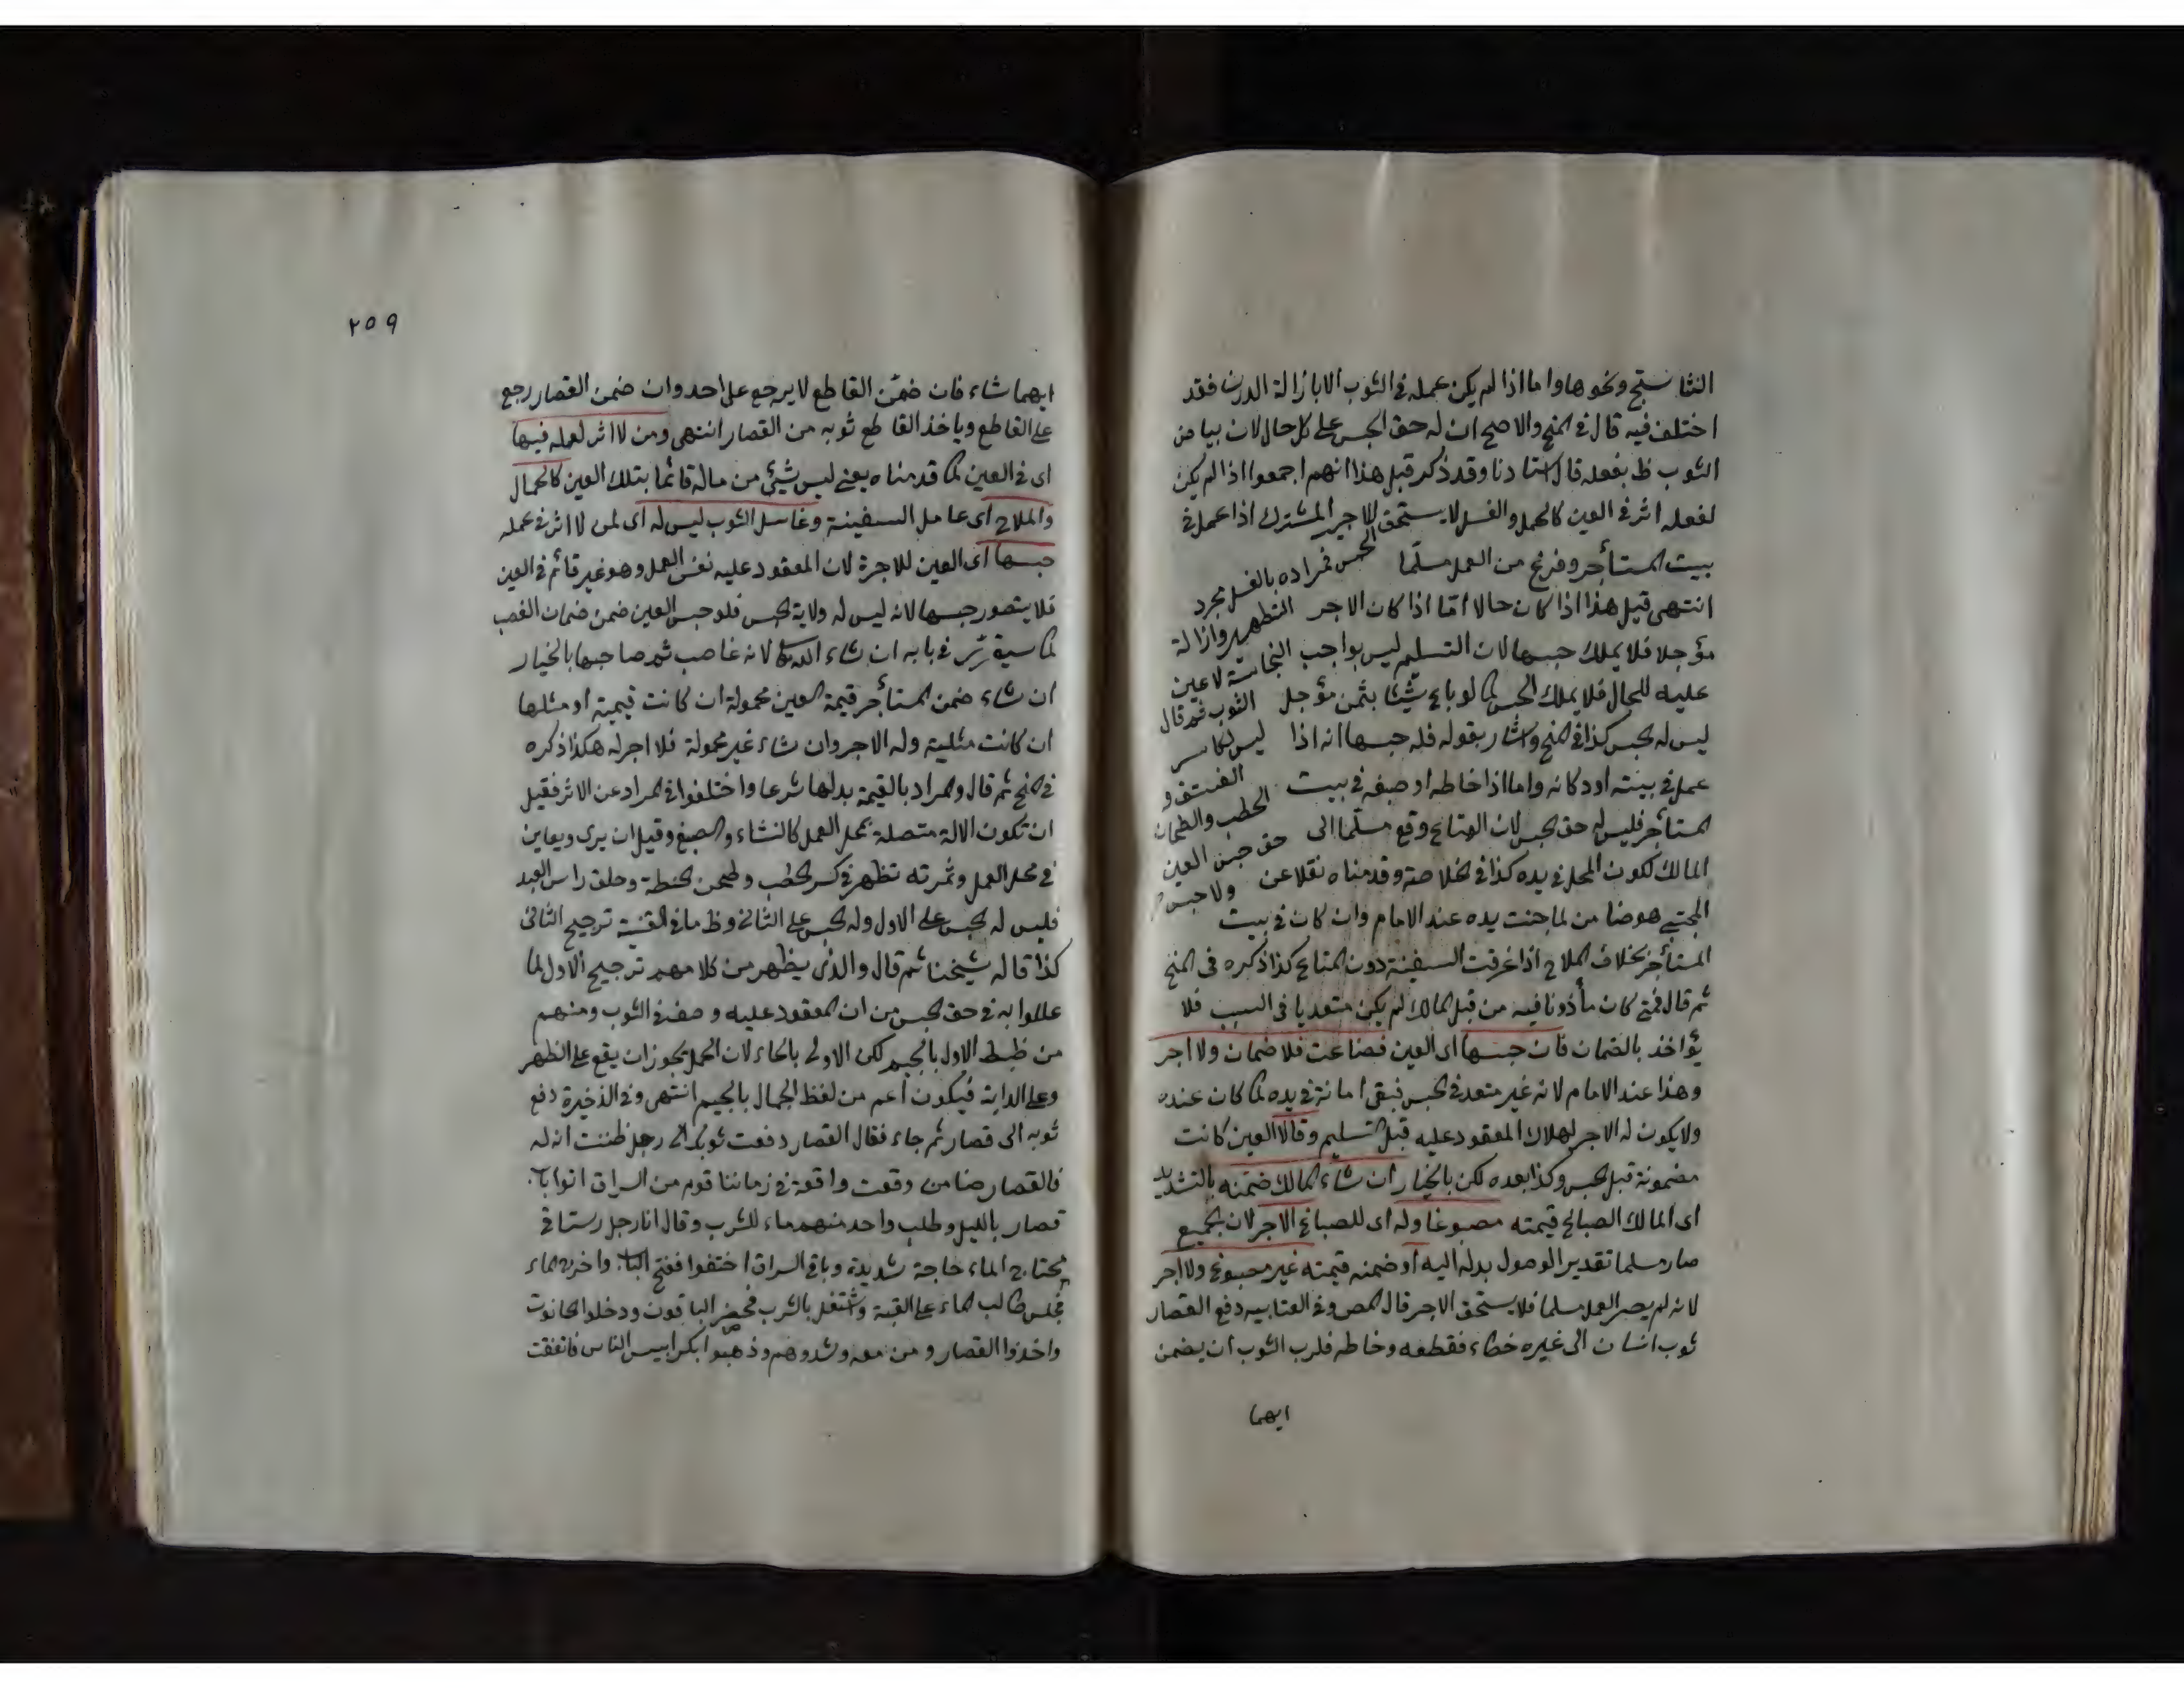 النشا ستج ونحوها واما اذا لم يكن عمله في الثوب الا بازالة الدرن فقد
اختلف فيه قال في المنح والاصح ان له حق الحبس على كل حال لان بياض
الثوب ظ بفعله قال استادنا وقد ذكر قبل هذا انهم اجمعوا اذا لم يكن
لفعله اثر في العين كالحمل والغسل لا يستحق الاجير المشترك اذا عمل في
بيت المستأجر وفرغ من العمل مسلّما الحبس فمراده بالغسل مجرد
انتهى قيل هذا اذا كان حالا امّا اذا كان الاجر التطهير وازالة
مؤجلا فلا يملك حبسها لان التسليم ليس بواجب النجاسة لا عين
عليه للحال فلا يملك الحبس كما لو باع شيئا بثمن مؤجل الثوب ثم قال
ليس له الحبس كذا في المنح واشار بقوله فله حبسها انه اذا ليس لكاسر
عمل في بيته او دكانه واما اذا خاطه او صبغه في بيت الفستق و
المستأجر فليس له حق الحبس لان المتاع وقع مسلّما الى الحطب والطحان
المالك لكون المحل في يده كذا في الخلاصة وقدمناه نقلا عن حق حبس العين
المجتبى هو ضامن لما جنت يده عند الامام وان كان في بيت ولا حبس
المستأجر بخلاف الملاح اذا غرقت السفينة دون المتاع كذا ذكره في المنح
ثم قال فمتى كان مأذونا فيه من قبل المالك لم يكن متعديا في السبب فلا
يؤاخذ بالضمان فان حبسها اى العين فضاعت فلا ضمان ولا اجر
وهذا عند الامام لانه غير متعد في الحبس فبقى امانة في يده كما كان عنده
ولا يكون له الاجر لهلاك المعقود عليه قبل التسليم وقالا العين كانت
مضمونة قبل الحبس وكذا بعده لكن بالخيار ان شاء المالك ضمنه بالتشديد
اى المالك الصباغ قيمته مصبوغا وله اى للصباغ الاجر لان الجميع
صار مسلما تقدير الوصول بدله اليه او ضمنه قيمته غير مصبوغ ولا اجر
لانه لم يصر العمل مسلما فلا يستحق الاجر قال المص وفي العتابيه دفع القصار
ثوب انسان الى غيره خطاء فقطعه وخاطه فلرب الثوب ان يضمن
ايهما
٢٥٩
ايهما شاء فان ضمّن القاطع لا يرجع على احد وان ضمن القصار رجع
على القاطع وياخذ القاطع ثوبه من القصار انتهى ومن لا اثر لعمله فيها
اى في العين كما قدمناه يعنى ليس شيئ من ماله قائما بتلك العين كالحمال
والملاح اى عامل السفينة وغاسل الثوب ليس له اى لمن لا اثر في عمله
حبسها اى العين للاجرة لان المعقود عليه نفس العمل وهو غير قائم في العين
فلا يتصور حبسها لانه ليس له ولاية الحبس فلو حبس العين ضمن ضمان الغصب
كما سيقرّر في بابه ان شاء الله تعالى لانه غاصب ثم صاحبها بالخيار
ان شاء ضمن المستأجر قيمة العين محمولة ان كانت قيمية او مثلها
ان كانت مثلية وله الاجر وان شاء غير محمولة فلا اجر له هكذا ذكره
في المنح ثم قال والمراد بالقيمة بدلها شرعا واختلفوا في المراد عن الاثر فقيل
ان تكون الالة متصلة بمحل العمل كالنشاء والصبغ وقيل ان يرى ويعاين
في محل العمل وثمرته تظهر في كسر الحطب وطحن الحنطة وحلق راس العبد
فليس له الحبس على الاول وله الحبس على الثانى وظ ما في القنية ترجيح الثانى
كذا قاله شيخنا ثم قال والذى يظهر من كلامهم ترجيح الاول لما
عللوا به في حق الحبس من ان المعقود عليه وصف في الثوب ومنهم
من ظبط الاول بالجيم لكن الاولى بالحاء لان الحمل يجوز ان يقع على الظهر
وعلى الدابة فيكون اعم من لفظ الجمال بالجيم انتهى وفي الذخيرة دفع
ثوبه الى قصار ثم جاء فقال القصار دفعت ثوبك الى رجل ظننت انه له
فالقصار ضامن وقعت واقعة في زماننا قوم من السراق اتوا باب
قصار بالليل وطلب واحد منهم ماء للشرب وقال انا رجل رستاقى
محتاج الماء حاجة شديدة وباقى السراق اختفوا ففتح الباب واخرج الماء
فجلس طالب الماء على العتبة واشتغل بالشرب فحضر الباقون ودخلوا الحانوت
واخذوا القصار و من معه وشدوهم وذهبوا بكرابيس الناس فاتفقت